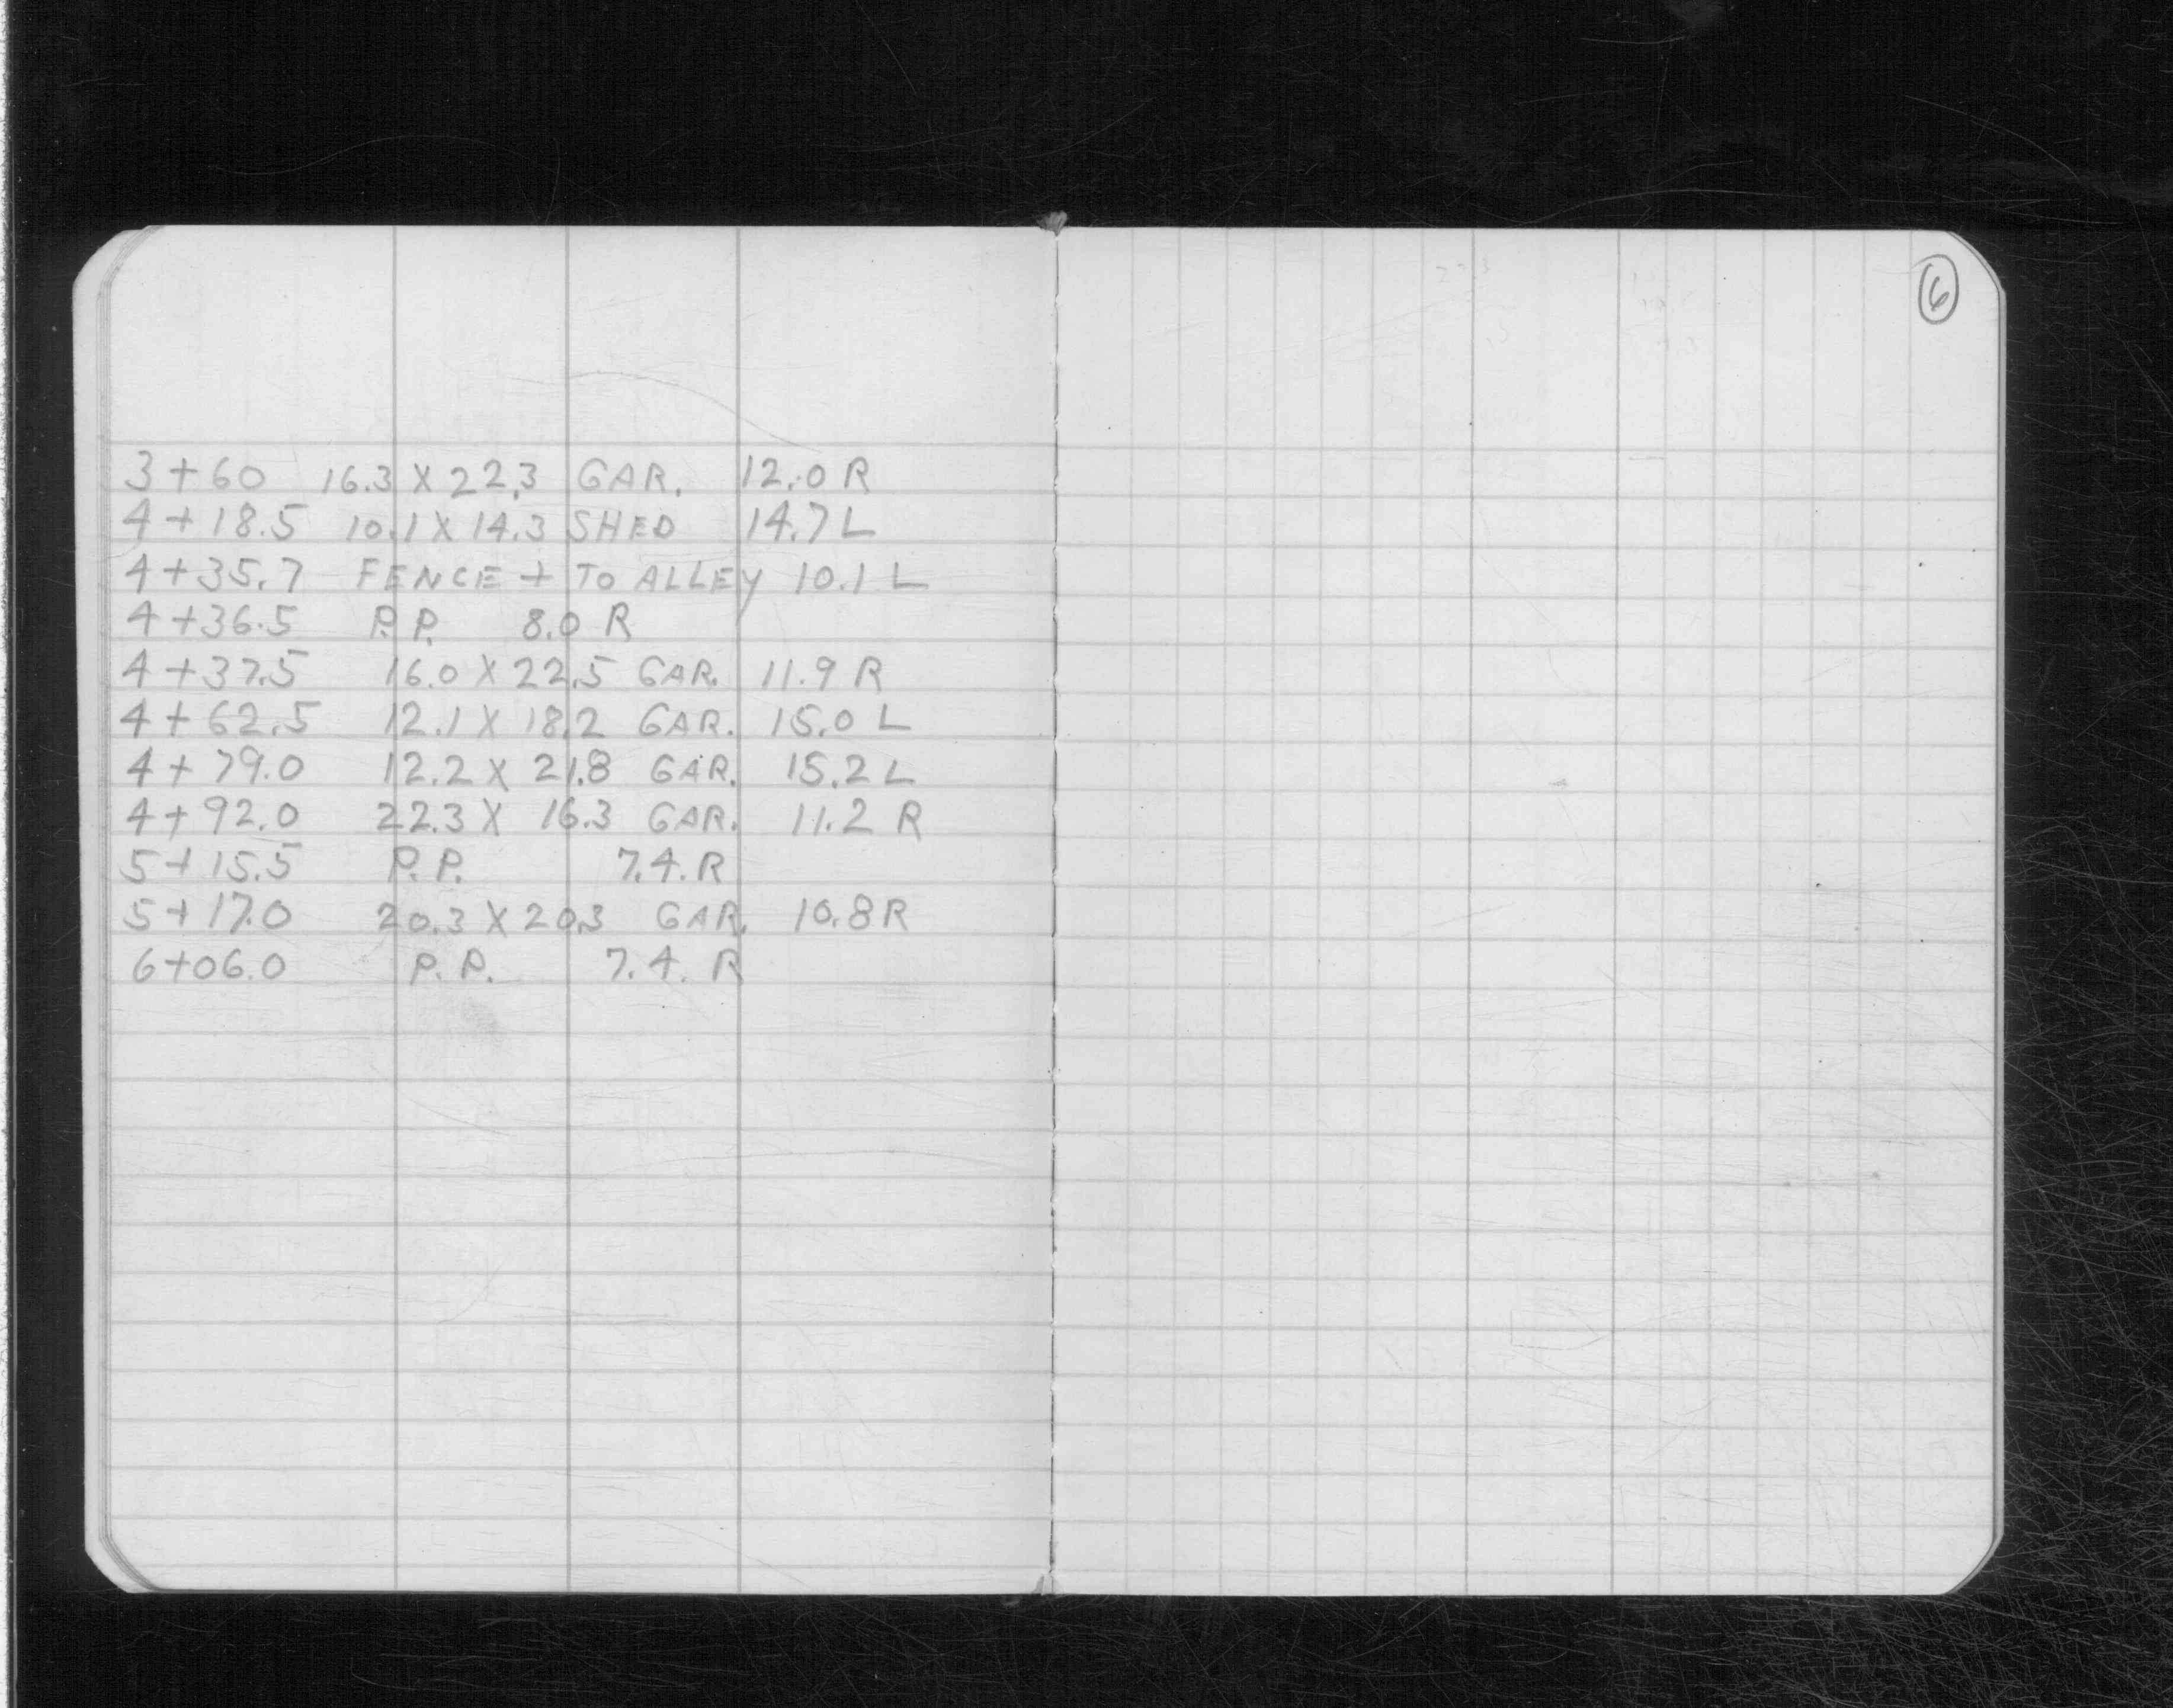 6
3+60 16.3 X 22.3 GAR. 12.0 R
4+18.5 10.1 X 14.3 SHED 14.7 L
4+35.7 FENCE ⊥ TO ALLEY 10.1 L
4+36.5 P.P. 8.0 R
4+37.5 16.0 X 22.5 GAR. 11.9 R
4+62.5 12.1 X 18.2 GAR. 15.0 L
4+79.0 12.2 X 21.8 GAR. 15.2 L
4+92.0 22.3 X 16.3 GAR. 11.2 R
5+15.5 P.P. 7.4. R
5+17.0 20.3 X 20.3 GAR. 10.8 R
6+06.0 P.P. 7.4. R